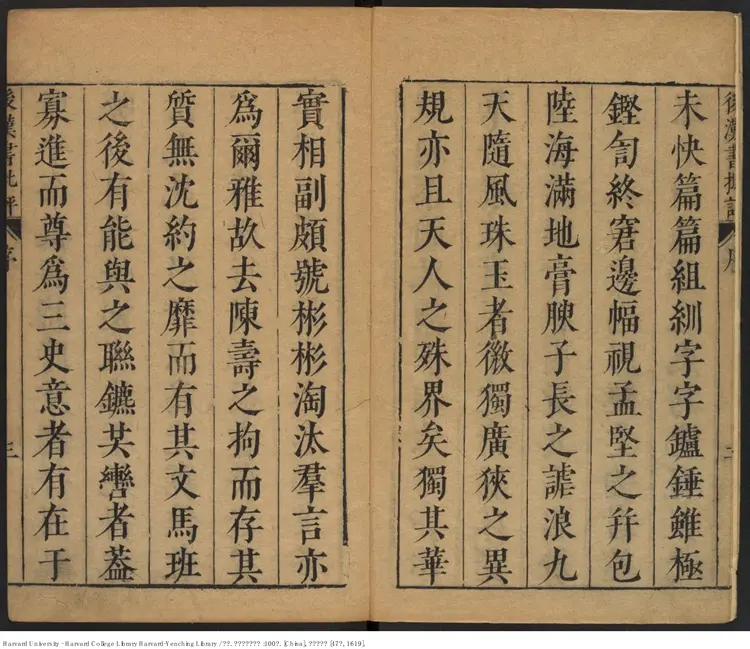 後漢書批評
序
未快篇篇組紃字字鑪錘雖極
鏗訇終窘邊幅視孟堅之幷包
陸海滿地膏腴子長之謔浪九
天隨風珠玉者微獨廣狹之異
規亦且天人之殊界矣獨其華
實相副頗號彬彬淘汰羣言亦
為爾雅故去陳壽之拘而存其
質無沈約之靡而有其文馬班
之後有能與之聯鑣共轡者蓋
寡進而尊爲三史意者有在于
後漢書批評
序
三
Harvard University - Harvard College Library Harvard-Yenching Library / ??. ??????? :100?. [China], ????? [47?, 1619].